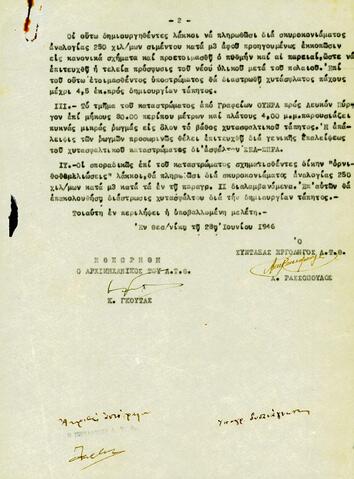 - 2 -
Οἱ οὕτω δημιουργηθέντες λάκκοι νά πληρωθῶσι διά σκυροκονιάματος
ἀναλογίας 250 χιλ/μων σιμέντου κατά μ3 ἀφοῦ προηγουμένως ἐκκοπῶσιν
εἰς κανονικά σχήματα καί προετοιμασθῇ ὁ πυθμήν καί αἱ παρειαί, ὥστε νά
ἐπιτευχθῇ ἡ τελεία πρόσφυσις τοῦ νέου ὑλικοῦ μετά τοῦ παλαιοῦ. Ἐπί τοῦ
οὕτω ἑτοιμασθέντος ὑποστρώματος θά διαστρωθῇ χυτάσφαλτος πάχους
μέχρι 4,5 ἑκ. πρός δημιουργίαν τάπητος.
ΙΙΙ.- Τό τμῆμα τοῦ καταστρώματος ἀπό Γραφείων ΟΥΝΡΑ πρός Λευκόν Πύργον
ἐπί μήκους 80.00 περίπου μέτρων καί πλάτους 4,00 μ.μ. παρουσιάζει
πυκνάς μικράς ρωγμάς εἰς ὅλον τό βάθος χυτασφαλτικοῦ τάπητος. Ἡ ἀπάλειψις
τῶν ρωγμῶν προσωρινῶς θέλει ἐπιτευχθῇ διά γενικῆς ἐπαλείψεως
τοῦ χυτασφαλτικοῦ καταστρώματος δι' ἀσφάλτου
ΙΥ.- Οἱ σποραδικῶς ἐπί τοῦ καταστρώματος σχηματισθέντες δίκην "ὀρνιθοθεμελλιώσεις"
λάκκοι, θά πληρωθῶσι διά σκυροκονιάματος ἀναλογίας 250
χιλ/μων κατά μ3 κατά τά ἐν τῇ παραγρ. ΙΙ διαλαμβανόμενα. Ἐπ' αὐτῶν θά
ἐπακολουθήσῃ διάστρωσις χυτασφάλτου διά τήν δημιουργίαν τάπητος.
Τοιαύτη ἐν περιλήψει ἡ ὑποβαλλομένη μελέτη.
Ἐν Θεσ/νίκῃ τῇ 28ῃ Ἰουνίου 1946
Ο
ΣΥΝΤΑΞΑΣ ΕΡΓΟΔΗΓΟΣ Δ.Τ.Θ.
Ε Θ Ε Ω Ρ Η Θ Η
Ο ΑΡΧΙΜΗΧΑΝΙΚΟΣ ΤΟΥ Δ.Τ.Θ
Κ. ΓΚΟΥΤΑΣ